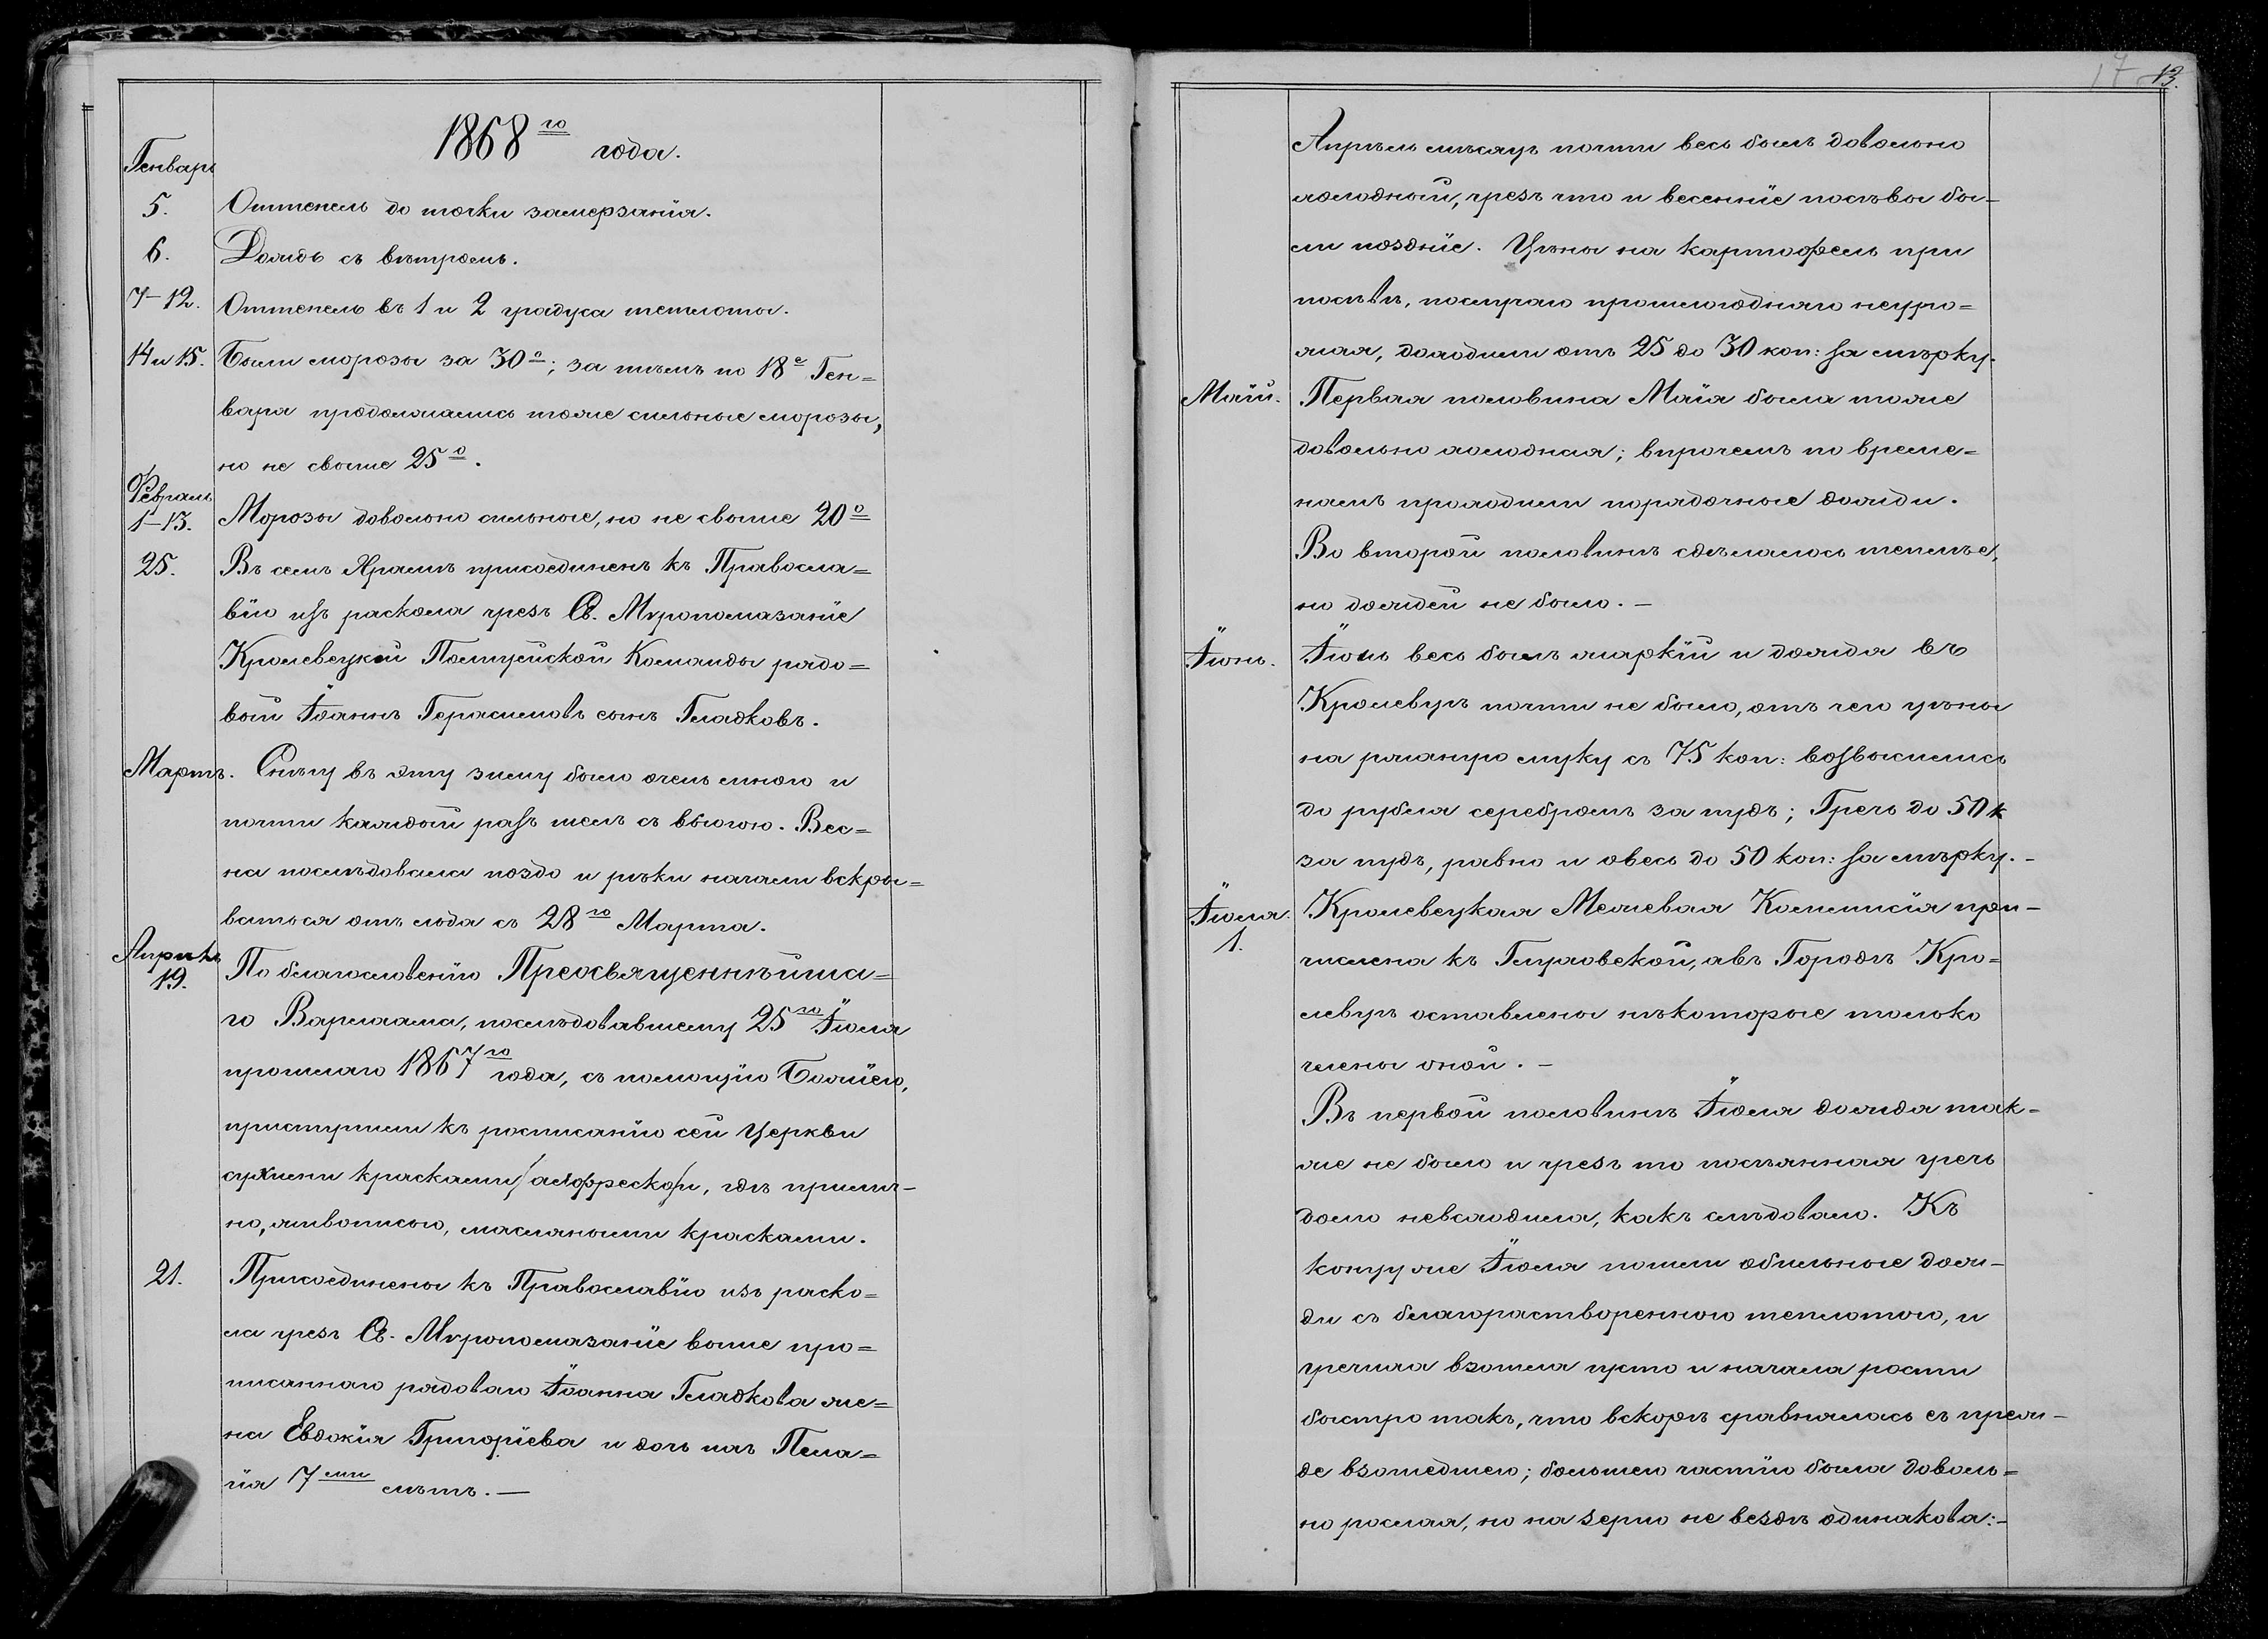 1868го года.
Генварь
5. Оттепель до точки замерзанія.
6. Дождь съ вѣтромъ.
7–12. Оттепель въ 1 и 2 градуса теплоты.
14 и 15. Были морозы за 30о; за тѣмъ по 18е Ген=
варя продолжались тоже сильные морозы,
но не свыше 25о.
Февраль
1–13. Морозы довольно сильные, но не свыше 20о
25. Въ семъ Храмѣ присоединенъ къ Правосла=
вію изъ раскола чрезъ Св. Мѵропомазаніе
Кролевецкой Полицейской Команды рядо=
вой Іоаннъ Герасимовъ сынъ Гладковъ.
Мартъ. Снѣгу въ эту зиму было очень много и
почти каждый разъ шелъ съ вьюгою. Вес=
на послѣдовала поздо и рѣки начали вскры=
ваться отъ льда съ 28го Марта.
Апрѣль
19. По благословенію Преосвященнѣйша=
го Варлаама, послѣдовавшему 25го Іюля
прошлаго 1867го года, съ помощію Божіею,
приступили къ росписанію сей Церкви
сухими красками /альфреско/ и, гдѣ прилич–
но, живописью, масляными красками.
21. Присоединены къ Православію изъ раско=
ла чрезъ Св. Мѵропомазаніе выше про=
писаннаго рядоваго Іоанна Гладкова же=
на Евдокія Григоріева и дочь ихъ Пела=
гія 7ми лѣтъ. —
17 13.
Апрѣль мѣсяцъ почти весь былъ довольно
холодный, чрезъ что и весенніе посѣвы бы–
ли поздніе. Цѣны на картофель при
посѣвѣ, послучаю прошлогодняго неуро=
жая, доходили отъ 25 до 30 коп: за мѣрку.
Май. Первая половина Маія была тоже
довольно холодная; впрочемъ по време=
намъ проходили порядочные дожди.
Во второй половинѣ сдѣлалось теплѣе,
но дождей не было. –
Іюнь. Іюнь весь былъ жаркій и дождя въ
Кролевцѣ почти не было, отъ чего цѣны
на ржаную муку съ 75 коп: возвысились
до рубля серебромъ за пудъ; Гречь до 50 к
за пудъ, равно и овесь до 50 коп: за мѣрку. –
Іюля. Кролевецкая Межевая Коммисія при–
1. числена къ Глуховской, авъ Городѣ Кро=
левцѣ оставлены нѣкоторые только
члены оной. –
Въ первой половинѣ Іюля дождя так=
же не было и чрезъ то посѣянная гречь
долго невсходила, какъ слѣдовало. Къ
концу же Іюля пошли обильные дож–
ди съ благорастворенною теплотою, и
гречиха взошла густо и начала рости
быстро такъ, что вскорѣ сравнялась съ преж–
де взошедшею; большею частію была доволь=
но рослая, но на зерно не вездѣ одинакова:–